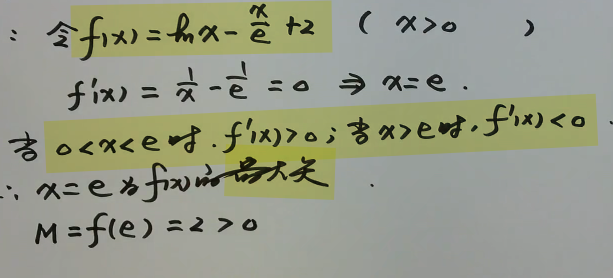 : 令 f(x) = ln x - x/e + 2 ( x > 0 )
f'(x) = 1/x - 1/e = 0 ⇒ x = e .
当 0 < x < e 时 . f'(x) > 0 ; 当 x > e 时 . f'(x) < 0
∴ x = e 为 f(x) 的 .
M = f(e) = 2 > 0